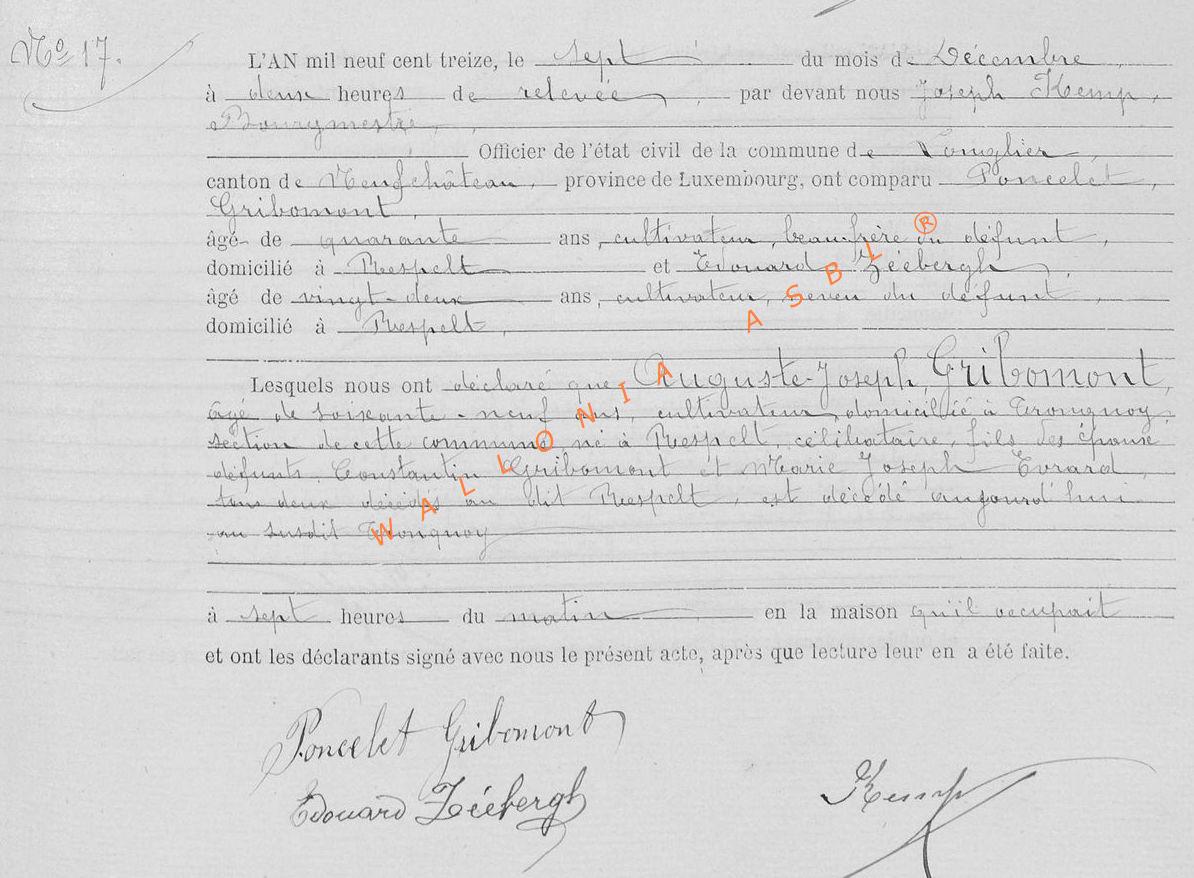 No 17.
L'AN mil neuf cent treize, le sept du mois de Décembre,
à deux heures de relevée, par devant nous Joseph Kemp,
Bourgmestre,
Officier de l'état civil de la commune de Longlier,
canton de Neufchâteau, province de Luxembourg, ont comparu Poncelet
Gribomont,
âgé de quarante ans, cultivateur, beau-frère du défunt,
domicilié à Respelt et Edouard Zéebergh,
âgé de vingt-deux ans, cultivateur, neveu du défunt,
domicilié à Respelt,
Lesquels nous ont déclaré que Auguste-Joseph Gribomont,
âgé de soixante-neuf ans, cultivateur, domicilié à Tronquoy,
section de cette commune, né à Respelt, célibataire, fils des époux
défunts Constantin Gribomont et Marie Joseph Evrard,
tous deux décédés au dit Respelt, est décédé aujourd'hui
au susdit Tronquoy
à sept heures du matin en la maison qu'il occupait
et ont les déclarants signé avec nous le présent acte, après que lecture leur en a été faite.
Poncelet Gribomont
Edouard Zéebergh
Kemp
WALLONIA ASBL ®